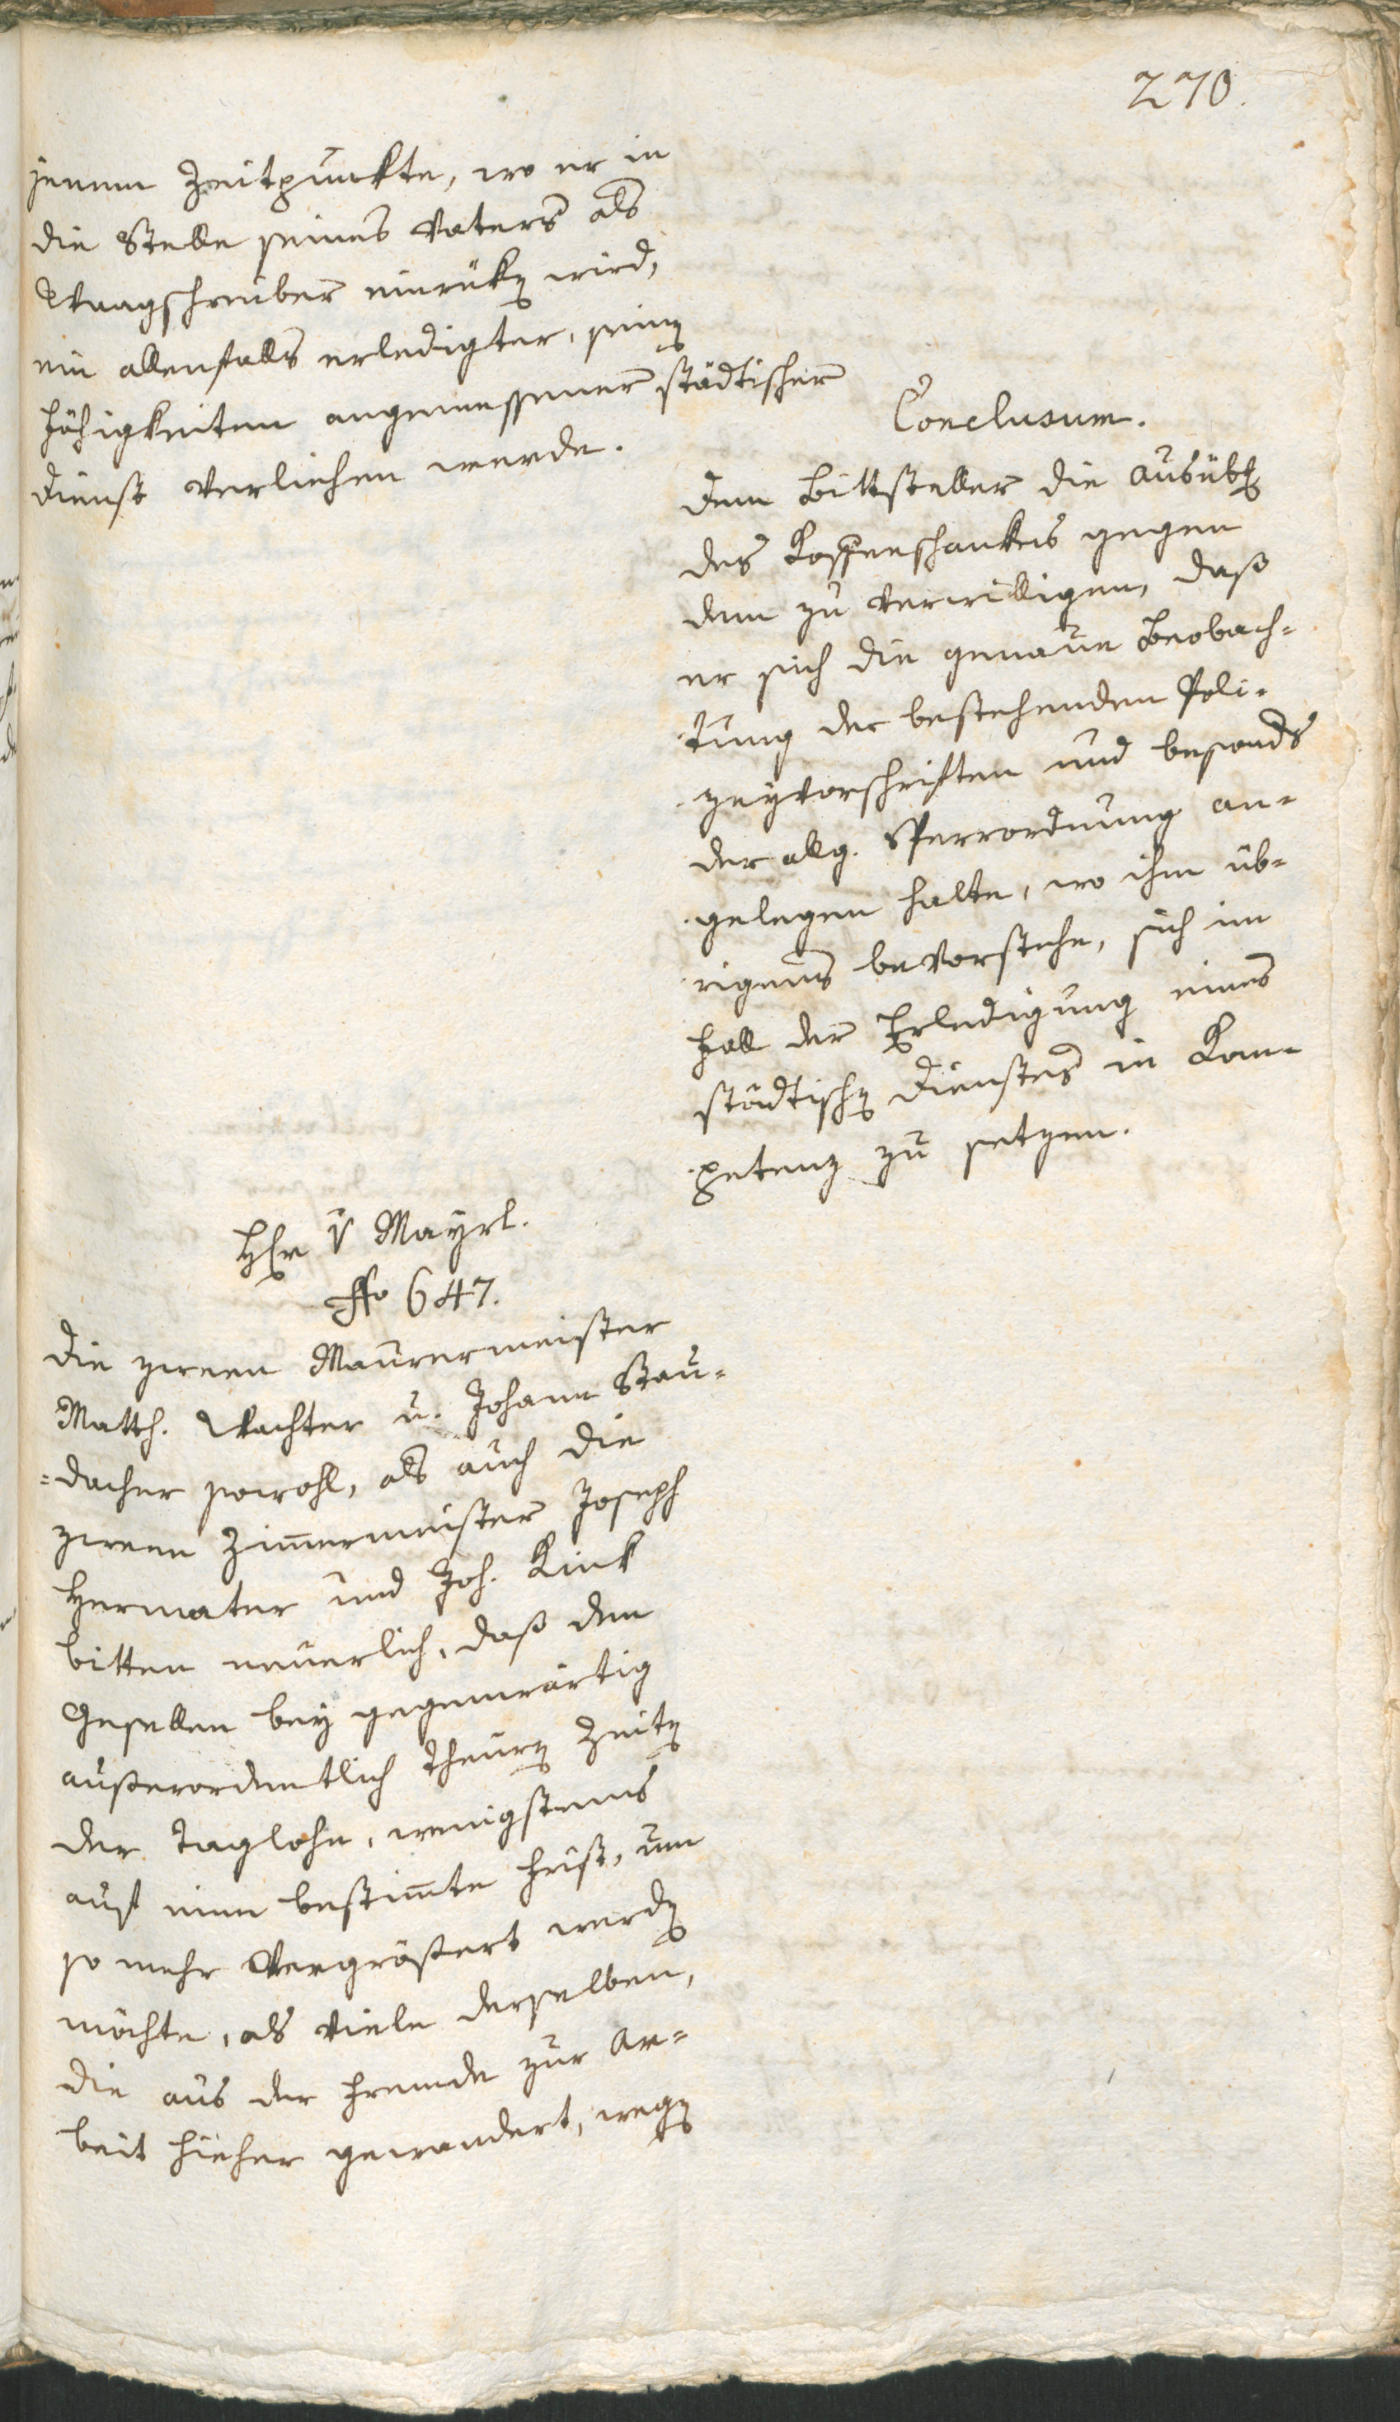 270.
jenem Zeitpunkte, wo er in
die Stelle seines Vaters als
Waagschreiber einrüken wird,
ein allenfalls erledigter, seinen
Fähigkeiten angemessener städtischer
Dienst verliehen werde.
Conclusum.
Dem Bittsteller die Ausübung
des Kaffeeschankes gegen
dem zu verwilligen, daß
er sich die genaue Beobach-
tung der bestehenden Poli-
zeyvorschriften und besonders
der allg. Sperrordnung an-
gelegen halte, wo ihm üb-
rigens bevorstehe, sich im
Fall der Erledigung eines
städtischen Dienstes in Kom-
petenz zu setzen.
Herr v Mayrl.
No 647.
Die zween Maurermeister
Matth. Wachter u. Johann Stau-
dacher sowohl, als auch die
zween Zimmermeister Joseph
Hermater und Joh. Kink
bitten neuerlich, daß den
Gesellen bey gegenwärtig
außerordentlich theuren Zeiten
der Taglohn, wenigstens
auf eine bestimmte Frist, um
so mehr vergrößert werden
möchte, als viele derselben,
die aus der Fremde zur Ar-
beit hieher gewandert, wegen